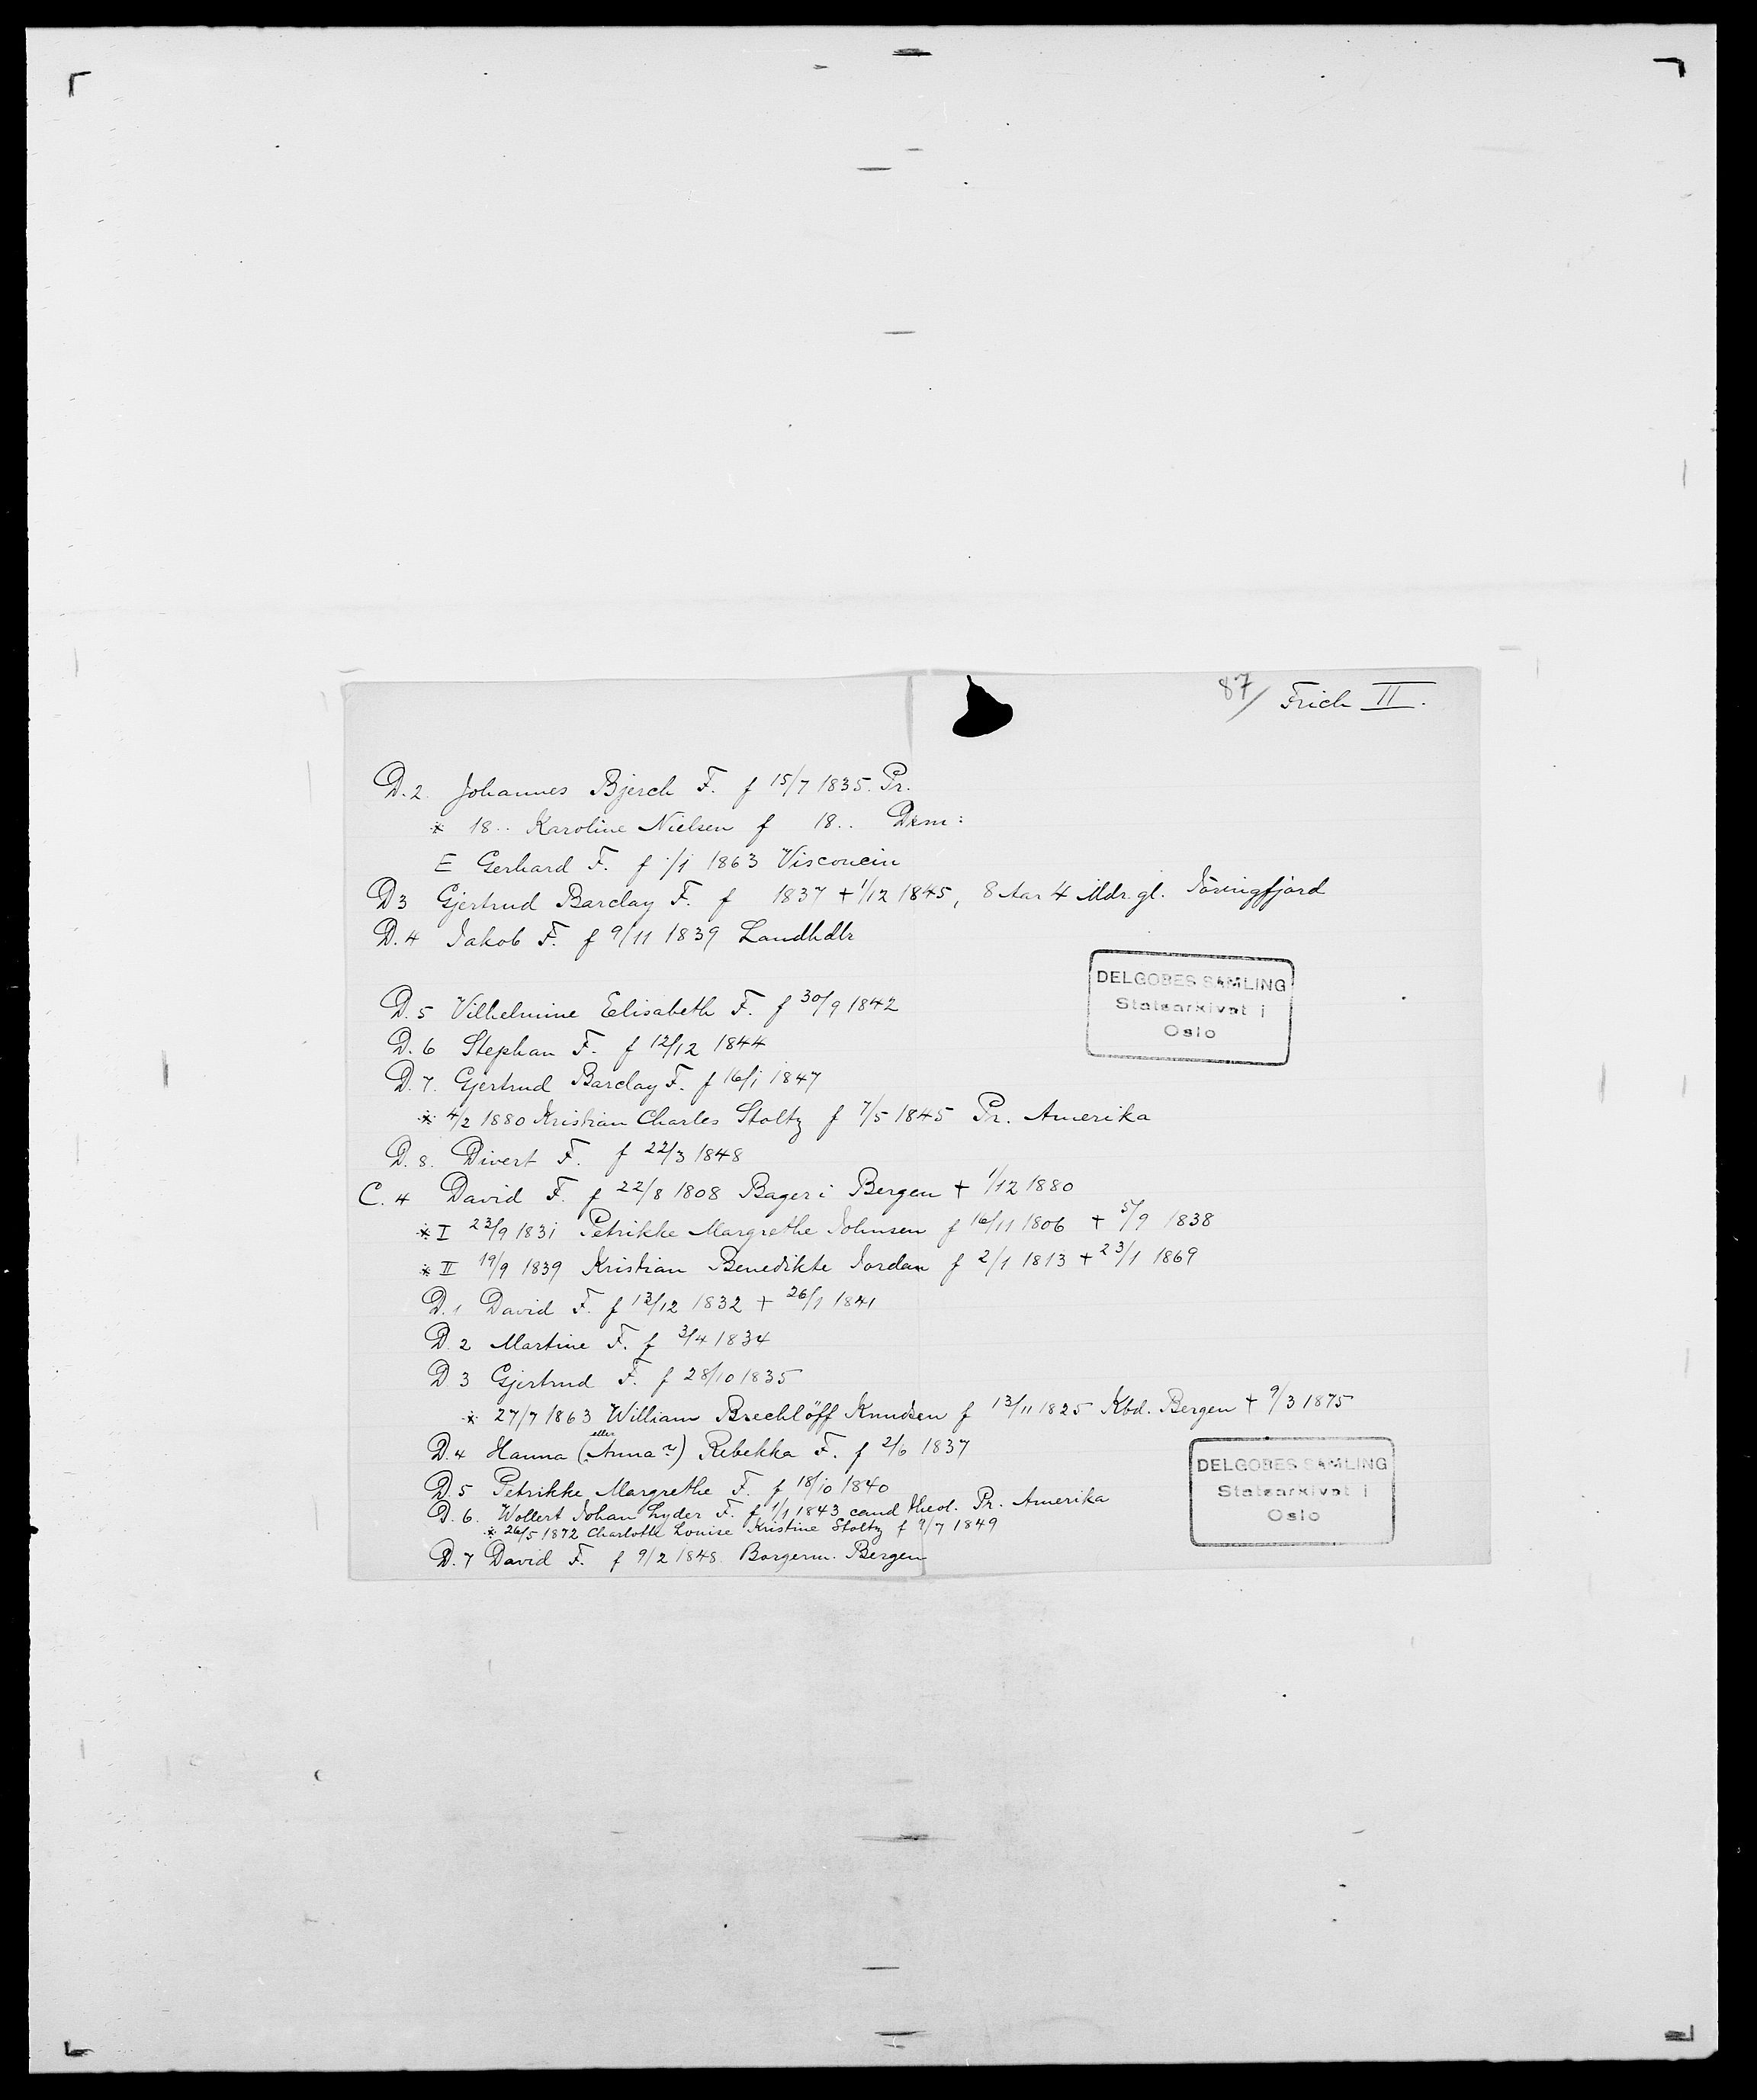 87/ Frich II.
D.2. Johannes Bjerch F. f 15/7 1835. Pr.
* 18.. Karoline Nielsen f 18..
E Gerhard F. f 1/1 1863 Visconcin
D3 Gjertrud Barclay F. f 1837 + 1/12 1845, 8 Aar 4 Mdr. gl.
D.4 Jakob F. f 9/11 1839 Landhdlr
D.5 Vilhelmine Elisabeth F. f 30/9 1842
D.6 Stephan F. f 12/12 1844
D.7. Gjertrud Barclay F. f 16/1 1847
* 4/2 1880 Kristian Charles Stoltz f 7/5 1845 Pr. Amerika
D.8. Divert F. f 22/3 1848
C.4 David F. f 22/8 1808 Bager i Bergen + 1/12 1880
* I 23/9 1831 Petrikke Margrethe Johnsen f 16/11 1806 + 5/9 1838
* II 19/9 1839 Kristian Benedikte Jordan f 2/1 1813 + 23/1 1869
D.1 David F. f 13/12 1832 + 26/1 1841
D.2 Martine F. f 3/4 1834
D 3 Gjertrud F. f 28/10 1835
* 27/7 1863 William Brechlöff Knudsen f 13/11 1825 Kbd. Bergen + 9/3 1875
D.4 Hanna (eller Anna?) Rebekka F. f 2/6 1837
D.5 Petrikke Margrethe F. f 18/10 1840
D.6. Wollert Johan Lyder F. f 1/1 1843 cand theol. Pr. Amerika
* 26/5 1872 Charlotte Louise Kristine Stoltz f 9/7 1849
D.7 David F. f 9/2 1848. Borgerm. Bergen
DELGOBES SAMLING
Statsarkivet i
Oslo
DELGOBES SAMLING
Statsarkivet i
Oslo